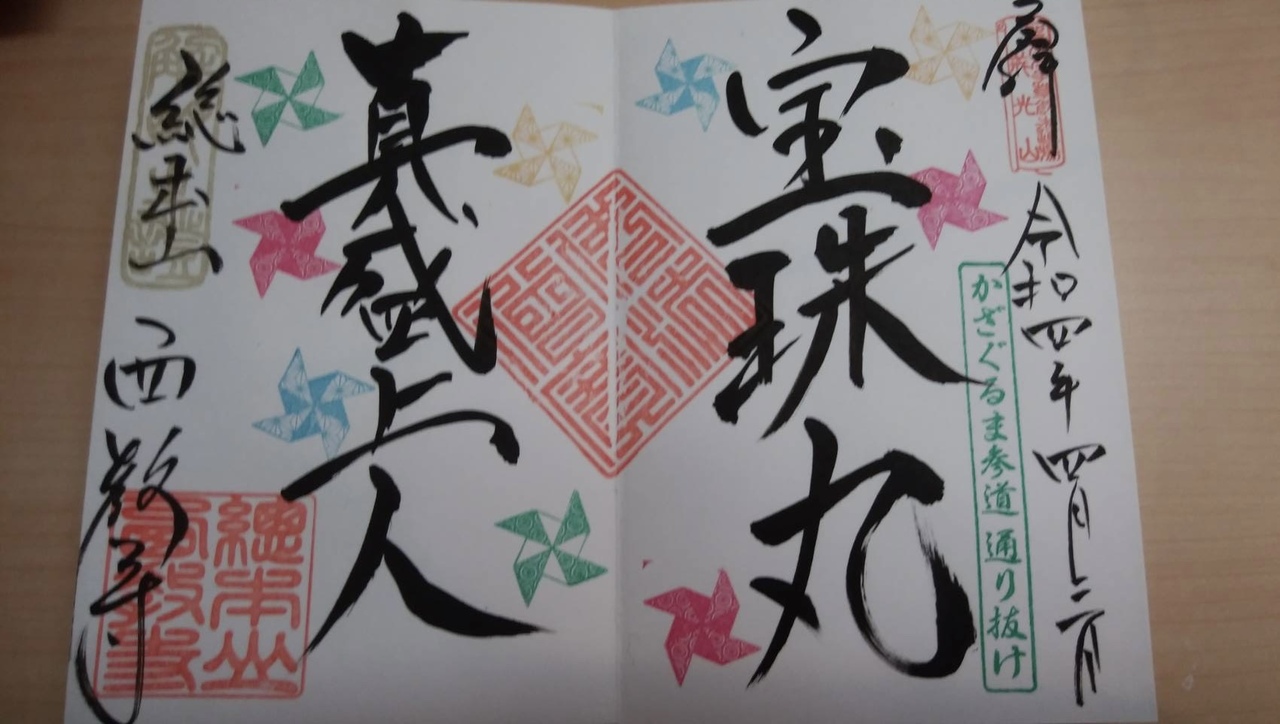 奉拝
令和四年四月二日
かざぐるま参道 通り抜け
宝珠丸
真盛上人
総本山
西教寺
總本山
西教寺